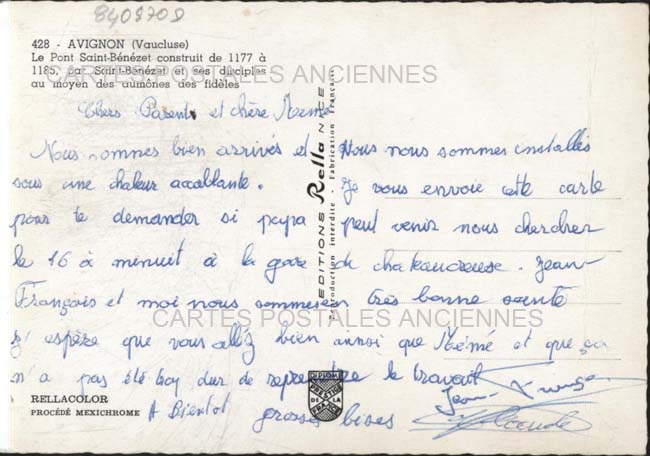 8409708
428 - AVIGNON (Vaucluse)
Le Pont Saint-Bénézet construit de 1177 à
1185, par Saint-Bénézet et ses disciples
au moyen des aumônes des fidèles
CARTES POSTALES ANCIENNES
Chers Parents et chère Mémé
Nous sommes bien arrivés et Nous nous sommes installés
sous une chaleur accablante. Je vous envoie cette carte
pour te demander si papa peut venir nous chercher
le 16 à minuit à la gare de chateaucreuse. Jean-
François et moi nous sommes en très bonne santé
CARTES POSTALES ANCIENNES
J'espère que vous allez bien ainsi que Mémé et que ça
n'a pas été trop dur de reprendre le travail
A Bientot grosses bises
Jean
EDITIONS Rella NICE
Reproduction Interdite - Fabrication Française
RELLACOLOR
PROCÉDÉ MEXICHROME
DIPLOME
PRESTIGE
DE LA
FRANCE